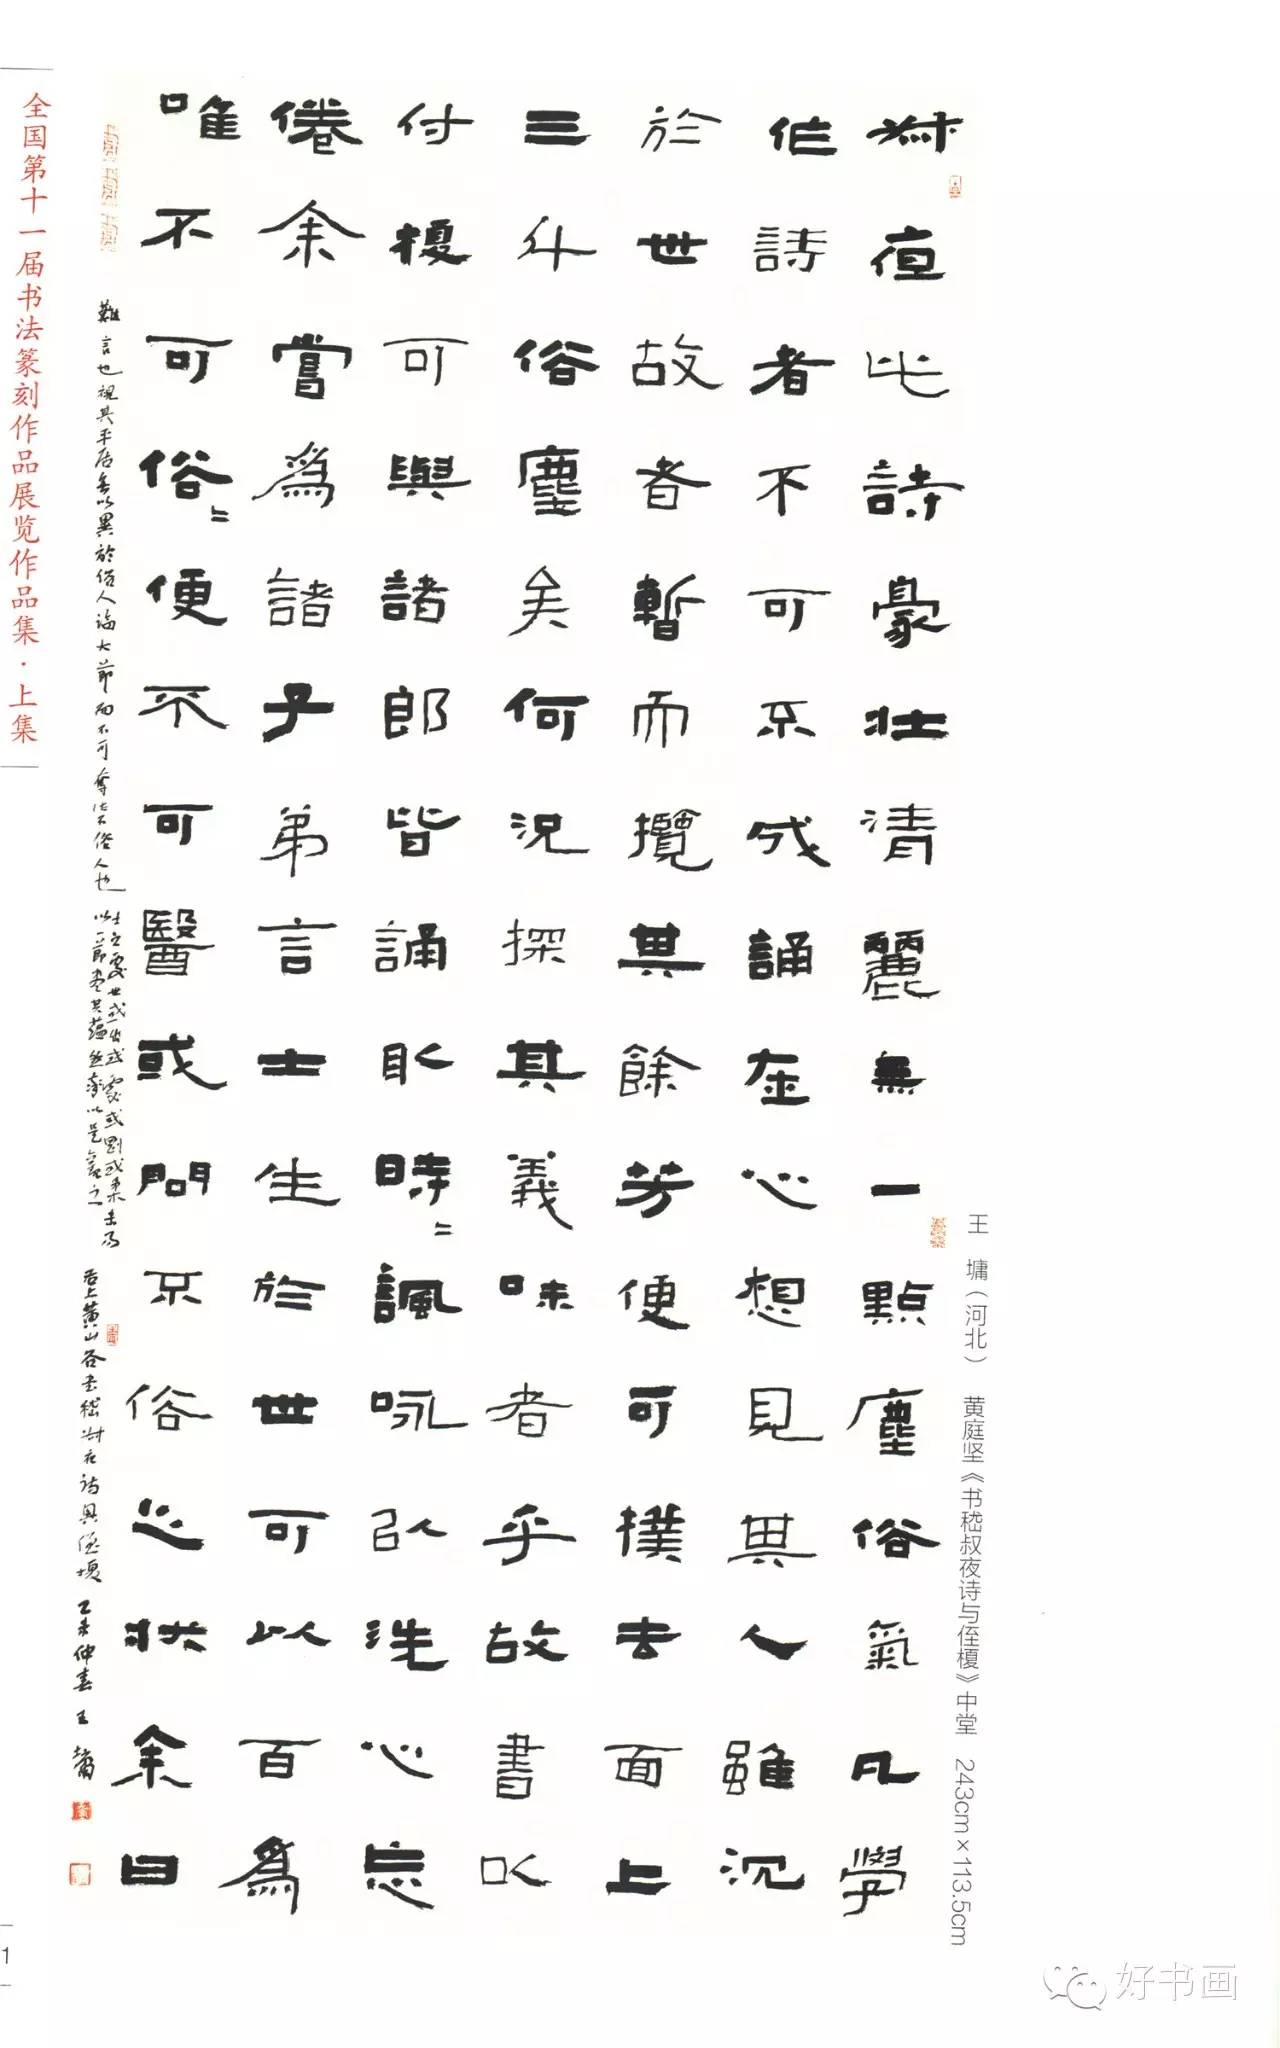 全国第十一届书法篆刻作品展览作品集·上集
王 墉（河北） 黄庭坚《书嵇叔夜诗与侄榎》中堂 243cm×113.5cm
叔夜此詩豪壮清麗無一點塵俗氣凡學
作詩者不可不成誦在心想見其人雖沉
於世故者暫而攬其餘芳便可撲去面上
三斗俗塵矣何況探其義味者乎故書以
付榎可與諸郎皆誦取時〻諷咏以洗心忘
倦余嘗爲諸子弟言士生於世可以百爲
唯不可俗〻便不可醫或問不俗之状余曰
難言也視其平居無以異於俗人臨大節而不可奪此不俗人也
士之處世或出或處或剛或柔未易
以一節盡其蘊然率以是觀之
右上黄山谷书嵇叔夜詩與侄榎
乙未仲春 王墉
1
好书画